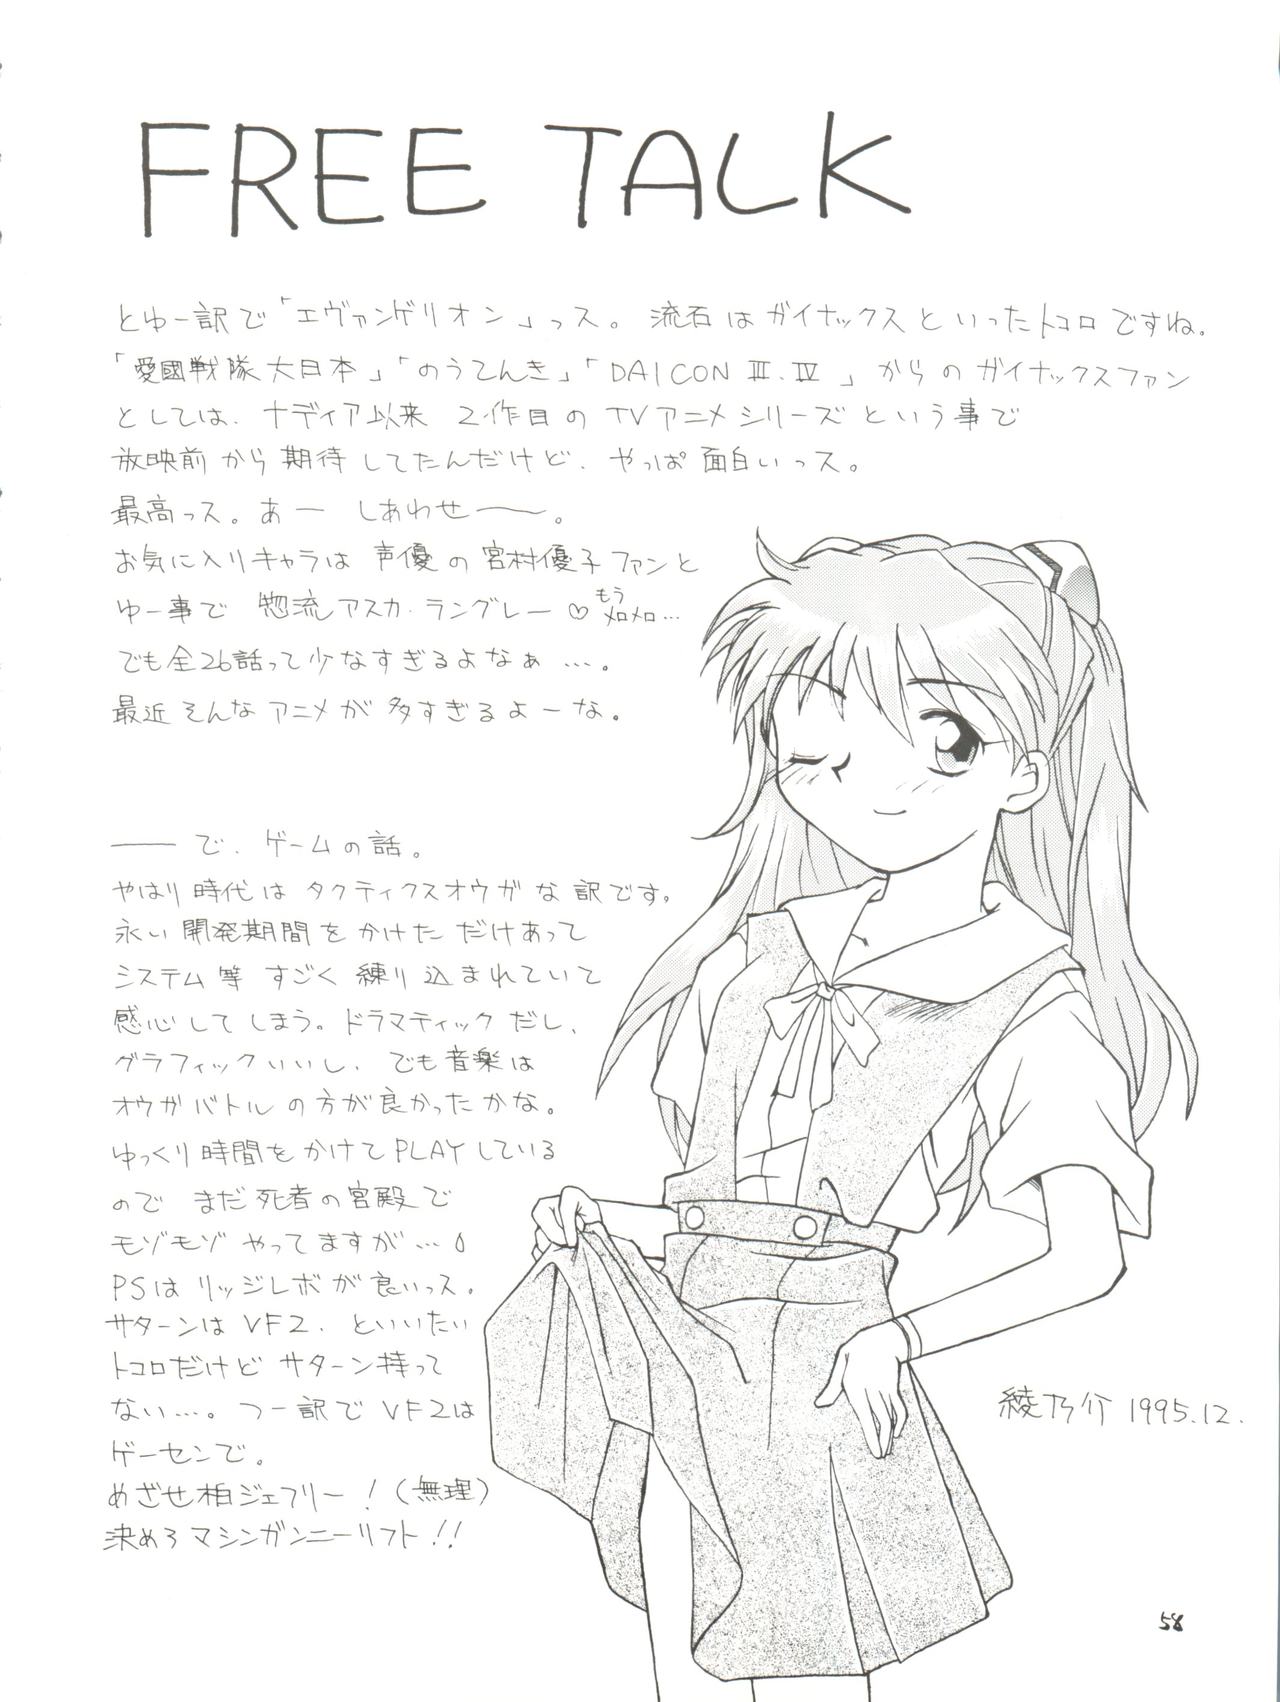 FREE TALK
とゆー訳で「エヴァンゲリオン」っス。流石はガイナックスといったトコロですね。
「愛國戦隊大日本」「のうてんき」「DAICON Ⅲ.Ⅳ」からのガイナックスファン
としては、ナディア以来 2作目のTVアニメシリーズという事で
放映前から期待してたんだけど、やっぱ面白いっス。
最高っス。あー しあわせ——。
お気に入りキャラは声優の宮村優子ファンと
ゆー事で 惣流アスカ・ラングレー♡もうメロメロ…
でも全26話って少なすぎるよなぁ…。
最近そんなアニメが多すぎるよーな。
——で、ゲームの話。
やはり時代はタクティクスオウガな訳です。
永い開発期間をかけただけあって
システム等すごく練り込まれていて
感心してしまう。ドラマティックだし、
グラフィックいいし、でも音楽は
オウガバトルの方が良かったかな。
ゆっくり時間をかけてPLAYしている
ので まだ死者の宮殿で
モゾモゾやってますが…
PSはリッジレボが良いっス。
サターンはVF2、といいたい
トコロだけどサターン持って
ない…。つー訳でVF2は
ゲーセンで。
めざせ柏ジェフリー！(無理)
決めろマシンガンニーリフト!!
綾乃介 1995.12.
58